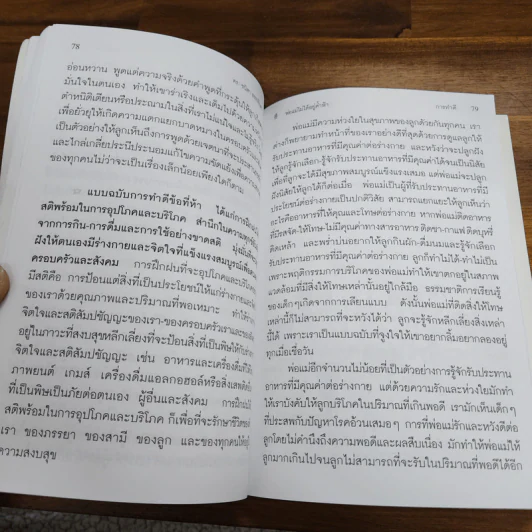 78
อ่อนหวาน พูดแต่ความจริงด้วยคำพูดที่กระตุ้นให้
มั่นใจในตนเอง ทำให้เขาร่าเริงและเต็มไปด้วย
ตำหนิติเตียนหรือประณามในสิ่งที่เราไม่แน่ใจและไม่
เพื่อยั่วยุให้เกิดความแตกแยกบาดหมางในครอบครัว
เป็นตัวอย่างให้ลูกเห็นถึงการพูดด้วยเจตนาที่จะประ
และไกล่เกลี่ยประนีประนอมแก้ไขความขัดแย้งเพื่อ
ของทุกคนไม่ว่าจะเป็นเรื่องเล็กน้อยเพียงใดก็ตาม
แบบฉบับการทำดีข้อที่ห้า ได้แก่การ
สติพร้อมในการอุปโภคและบริโภค สำนึกในความทุกข์
จากการกิน-การดื่มและการใช้อย่างขาดสติ มุ่งมั่น
ฝึงให้ตนเองมีร่างกายและจิตใจที่แข็งแรงสมบูรณ์เพื่อ
ครอบครัวและสังคม การฝึกฝนที่จะอุปโภคและบริโภค
มีสติคือ การป้อนแต่สิ่งที่เป็นประโยชน์ให้แก่ร่างกายและ
ของเราด้วยคุณภาพและปริมาณที่พอเหมาะ ทำให้
จิตใจและสติสัมปชัญญะของเรา-ของครอบครัวเราและของ
อยู่ในภาวะที่สงบสุขหลีกเลี่ยงที่จะป้อนสิ่งที่เป็นพิษให้กับ
จิตใจและสติสัมปชัญญะ เช่น อาหารและเครื่องดื่มที่
ภาพยนต์ เกมส์ เครื่องดื่มแอลกอฮอล์หรือสิ่งเสพติด
ที่เป็นพิษเป็นภัยต่อตนเอง ผู้อื่นและสังคม การฝึก
สติพร้อมในการอุปโภคและบริโภค ก็เพื่อที่จะรักษาชีวิต
เรา ของภรรยา ของสามี ของลูก และของทุกคนให้อยู่
ความสงบสุข
พ่อแม่ไม่ได้อยู่ค้ำฟ้า การทำดี 79
พ่อแม่มีความห่วงใยในสุขภาพของลูกด้วยกันทุกคน เรา
ต่างก็พยายามทำหน้าที่ของเราอย่างดีที่สุดด้วยการดูแลลูกให้
รับประทานอาหารที่มีคุณค่าต่อร่างกาย และหวังว่าจะปลูกฝัง
ให้ลูกรู้จักเลือก-รู้จักรับประทานอาหารที่มีคุณค่าได้จนเป็นนิสัย
เพื่อที่ลูกจะได้มีสุขภาพสมบูรณ์แข็งแรงเสมอ แต่พ่อแม่จะปลูก
ฝังนิสัยให้ลูกได้ก็ต่อเมื่อ พ่อแม่เป็นผู้ที่รับประทานอาหารที่มี
ประโยชน์ต่อร่างกายเป็นปกติวิสัย สามารถแยกแยะให้ลูกเห็นว่า
อะไรคืออาหารที่ให้คุณและโทษต่อร่างกาย หากพ่อแม่ติดอาหาร
ที่มีรสจัด-ให้โทษ-ไม่มีคุณค่าทางสารอาหาร ติดชา-กาแฟ ติดบุหรี่
ติดเหล้า และพร่ำบ่นอยากให้ลูกกินผัก-ดื่มนมและรู้จักเลือก
รับประทานอาหารที่มีคุณค่าต่อร่างกาย ลูกก็ทำไม่ได้-ทำไม่เป็น
เพราะพฤติกรรมการบริโภคของพ่อแม่ทำให้เขาตกอยู่ในสภาพ
แวดล้อมที่มีสิ่งให้โทษเหล่านั้นอยู่ใกล้มือ ธรรมชาติการเรียนรู้
ของเด็กๆเกิดจากการเลียนแบบ ดังนั้นพ่อแม่ที่ติดสิ่งให้โทษ
เหล่านี้ก็ไม่สามารถที่จะหวังได้ว่า ลูกจะรู้จักหลีกเลี่ยงสิ่งเหล่า
นี้ได้ เพราะเราเป็นแบบฉบับที่จูงใจให้เขาอยากลิ้มอยากลองอยู่
ทุกเมื่อเชื่อวัน
พ่อแม่อีกจำนวนไม่น้อยที่เป็นตัวอย่างการรู้จักรับประทาน
อาหารที่มีคุณค่าต่อร่างกาย แต่ด้วยความรักและห่วงใยมักทำ
ให้เราบังคับให้ลูกบริโภคในปริมาณที่เกินพอดี เรามักเห็นเด็กๆ
ที่ประสพกับปัญหาโรคอ้วนเสมอๆ การที่พ่อแม่รักและหวังดีต่อ
ลูกโดยไม่คำนึงถึงความพอดีและผลสืบเนื่อง มักทำให้พ่อแม่ให้
ลูกมากเกินไปจนลูกไม่สามารถที่จะรับในปริมาณที่พอดีได้อีก